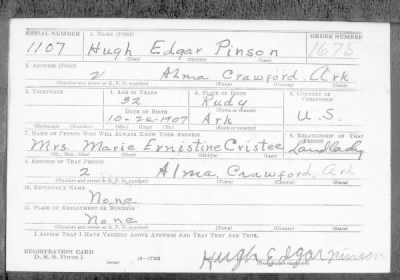 SERIAL NUMBER 1. NAME (Print) ORDER NUMBER
1107 Hugh Edgar Pinson 1675
(First) (Middle) (Last)
2. ADDRESS (Print)
2 Alma Crawford, Ark
(Number and street or R. F. D. number) (Town) (County) (State)
3. TELEPHONE 4. AGE IN YEARS 5. PLACE OF BIRTH 6. COUNTRY OF CITIZENSHIP
32 Rudy
DATE OF BIRTH (Town or county)
10-26-1907 Ark U.S.
(Exchange) (Number) (Mo.) (Day) (Yr.) (State or country)
7. NAME OF PERSON WHO WILL ALWAYS KNOW YOUR ADDRESS 8. RELATIONSHIP OF THAT PERSON
Mrs. Marie Ernistine Cristee Landlady
(Mr., Mrs., Miss) (First) (Middle) (Last)
9. ADDRESS OF THAT PERSON
2 Alma, Crawford, Ark
(Number and street or R. F. D. number) (Town) (County) (State)
10. EMPLOYER'S NAME
None
11. PLACE OF EMPLOYMENT OR BUSINESS
None
(Number and street or R. F. D. number) (Town) (County) (State)
I AFFIRM THAT I HAVE VERIFIED ABOVE ANSWERS AND THAT THEY ARE TRUE.
REGISTRATION CARD
D. S. S. Form 1 Hugh Edgar Pinson